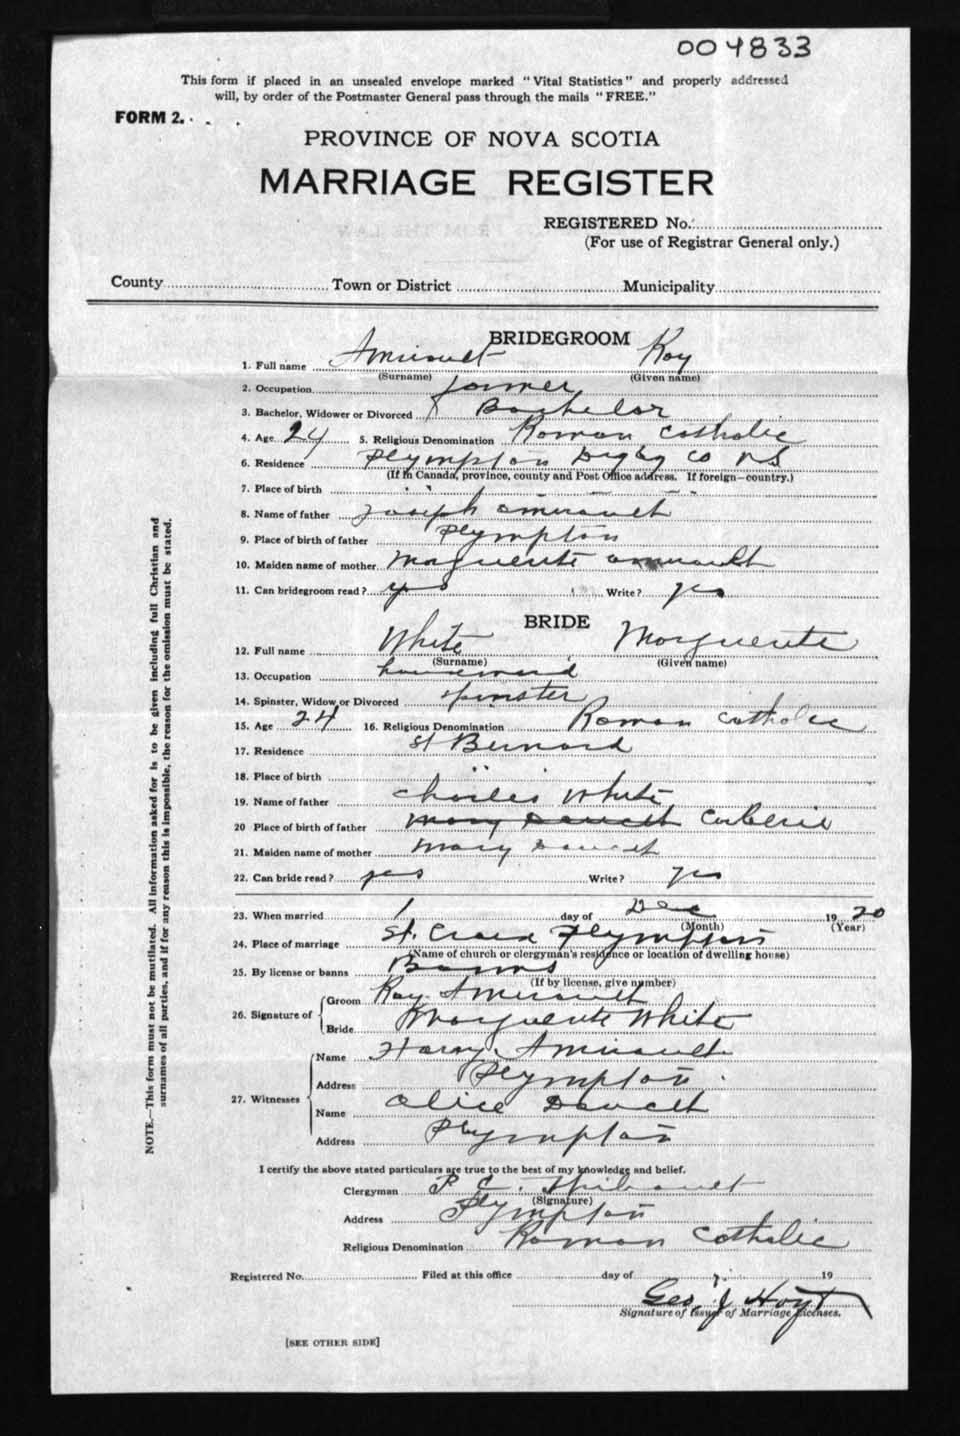 004833
This form if placed in an unsealed envelope marked "Vital Statistics" and properly addressed
will, by order of the Postmaster General pass through the mails "FREE."
FORM 2.
PROVINCE OF NOVA SCOTIA
MARRIAGE REGISTER
REGISTERED No.
(For use of Registrar General only.)
County Town or District Municipality
BRIDEGROOM
1. Full name Amirault Roy
(Surname) (Given name)
2. Occupation farmer
3. Bachelor, Widower or Divorced Bachelor
4. Age 24 5. Religious Denomination Roman Catholic
6. Residence Plympton Digby Co NS
(If in Canada, province, county and Post Office address. If foreign—country.)
7. Place of birth " " " "
8. Name of father Joseph Amirault
9. Place of birth of father Plympton
10. Maiden name of mother Marguerite Amirault
11. Can bridegroom read? yes Write? yes
BRIDE
12. Full name White Marguerite
(Surname) (Given name)
13. Occupation housemaid
14. Spinster, Widow or Divorced spinster
15. Age 24 16. Religious Denomination Roman Catholic
17. Residence St Bernard
18. Place of birth " "
19. Name of father Charles White
20 Place of birth of father Mary Doucet Corberie
21. Maiden name of mother Mary Doucet
22. Can bride read? yes Write? yes
23. When married 1 day of Dec 1920
(Month) (Year)
24. Place of marriage St. Croix Plympton
(Name of church or clergyman's residence or location of dwelling house)
25. By license or banns Banns
(If by license, give number)
26. Signature of Groom Roy Amirault
Bride Marguerite White
27. Witnesses Name Harry Amirault
Address Plympton
Name Alice Doucet
Address Plympton
I certify the above stated particulars are true to the best of my knowledge and belief.
Clergyman P. E. Thibault
(Signature)
Address Plympton
Religious Denomination Roman Catholic
Registered No. Filed at this office day of 19
Geo. J Hoyt
Signature of Issuer of Marriage Licenses.
[SEE OTHER SIDE]
NOTE.—This form must not be mutilated. All information asked for is to be given including full Christian and
surnames of all parties, and if for any reason this is impossible, the reason for the omission must be stated.